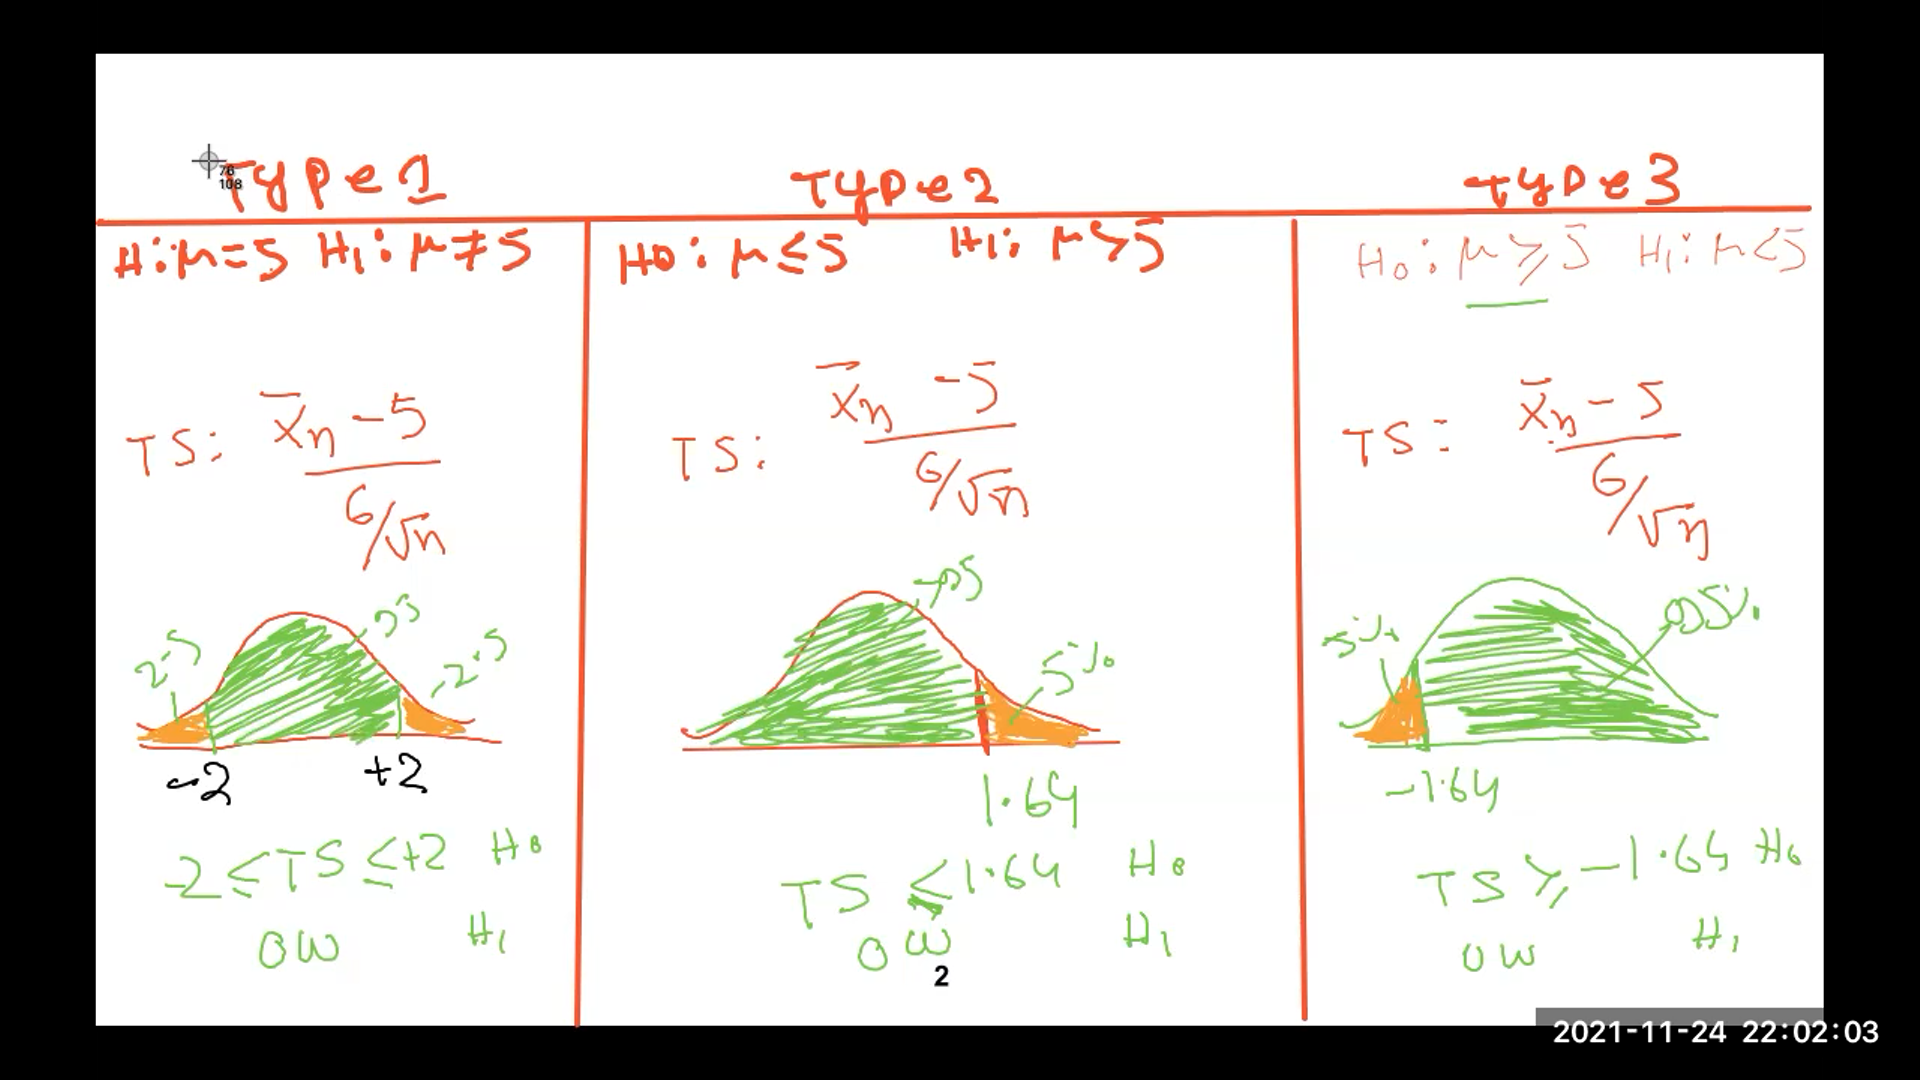 Type 1
H: μ = 5 H₁: μ ≠ 5
TS: x̄n - 5
6/√n
2.5
95
2.5
-2 +2
-2 ≤ TS ≤ +2 H0
OW H₁
Type 2
H0: μ ≤ 5 H1: μ > 5
TS: x̄n - 5
6/√n
95
5%
1.64
TS ≤ 1.64 H0
OW H₁
2
Type 3
H₀: μ ≥ 5 H₁: μ < 5
TS: x̄n - 5
6/√n
5%
95%
-1.64
TS ≥ -1.64 H₀
OW H₁
76
108
2021-11-24 22:02:03